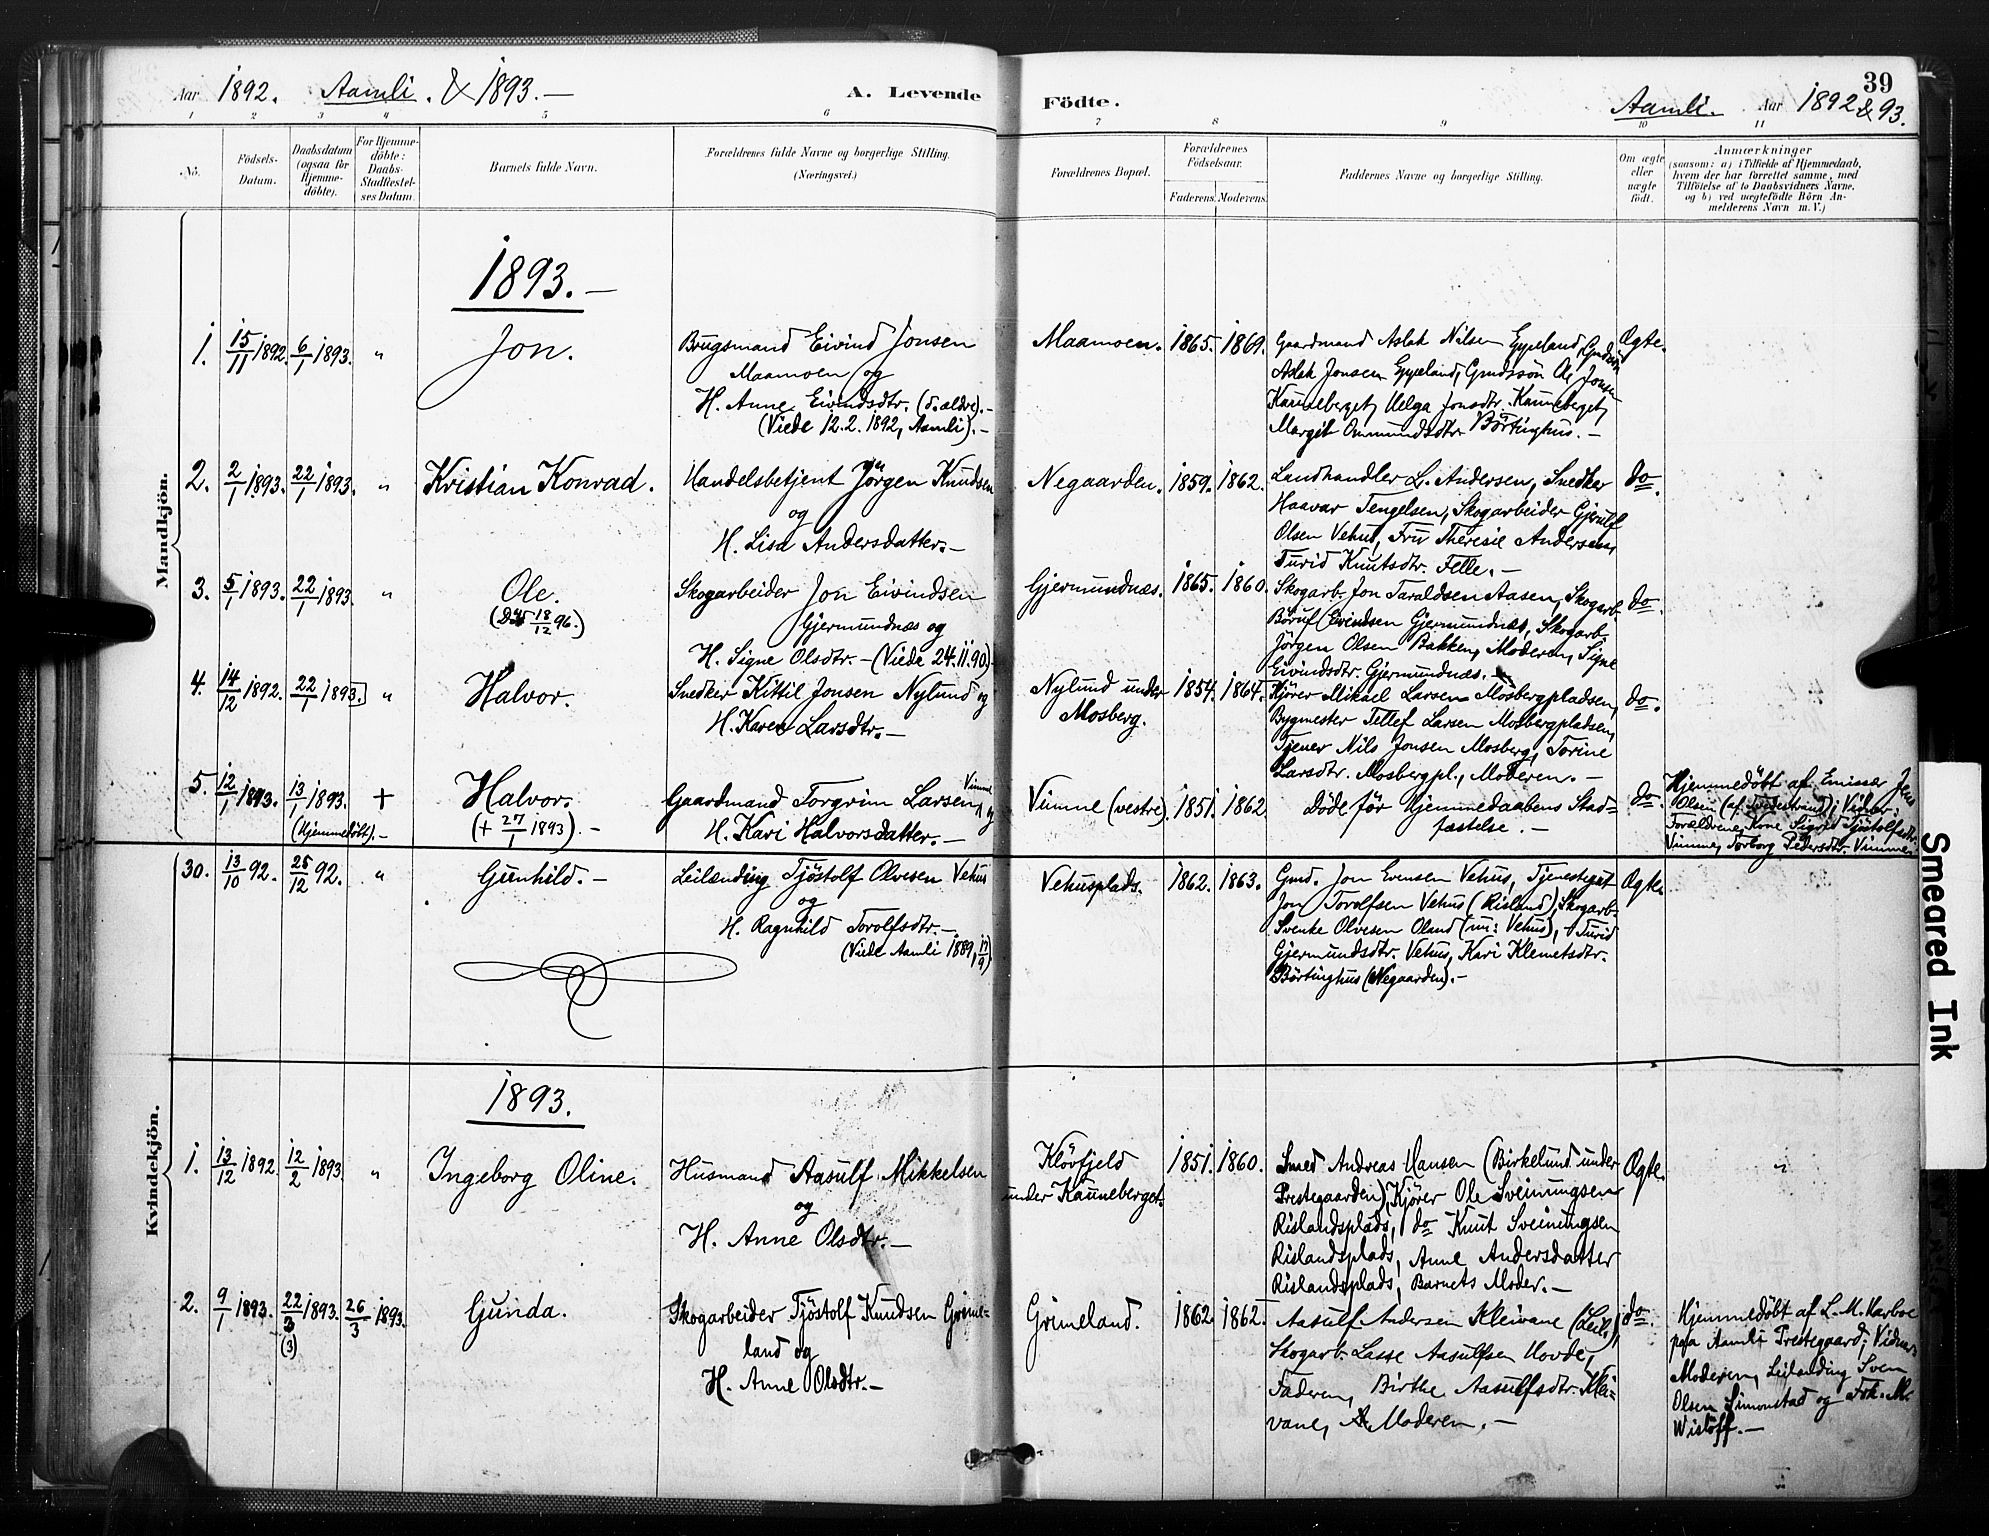 Aar 1892. Aamli. & 1893. —
A. Levende Födte.
Aamli. Aar 1892 & 93.
39
1 2 3 4 5 6 7 8 9 10 11
No.
Födsels-
Datum.
Daabsdatum
(ogsaa for
Hjemme-
döbte).
For Hjemme-
döbte:
Daabs-
Stadfæstel-
ses Datum.
Barnets fulde Navn.
Forældrenes fulde Navne og borgerlige Stilling.
(Næringsvei.)
Forældrenes Bopæl.
Forældrenes
Födselsaar.
Faderens. Moderens.
Faddernes Navne og borgerlige Stilling.
Om ægte
eller
uægte
födt.
Anmærkninger
(saasom: a) i Tilfælde af Hjemmedaab,
hvem der har forrettet samme, med
Tilföielse af to Daabsvidners Navne,
og b) ved uægtefödte Börn An-
melderens Navn m. V.)
Mandkjön.
1893. —
1. 15/11 1892. 6/1 1893. "
Jon.
Brugsmand Eivind Jonsen
Maamoen og
H. Anne Eivindsdtr. (d. ældre). —
(Viede 12.2.1892, Aamli). —
Maamoen. 1865. 1869.
Gaardmand Aslak Nilsen Eppeland, Gmdssön
Aslak Jonsen Eppeland, Gmdssön Ole Jonsen
Kauneberget, Helga Jonsdtr. Kauneberget,
Margit Ommundsdtr. Börtinghus. —
Ægte.
2. 2/1 1893. 22/1 1893. "
Kristian Konrad.
Handelsbetjent Jörgen Knudsen
og
H. Lisa Andersdatter. —
Negaarden. 1859. 1862.
Landhandler L. Andersen, Snedker
Haavar Tengelsen, Skogarbeider Gjerulf
Olsen Vehus, Fru Theresie Andersen,
Turid Knutsdtr. Felle. —
do.
3. 5/1 1893. 22/1 1893. "
Ole.
(Död 18/12 96.)
Skogarbeider Jon Eivindsen
Gjermundnæs og
H. Signe Olsdtr. — (Viede 24.11.90)
Gjermundnæs. 1865. 1860.
Skogarb. Jon Taraldsen Aasen, Skogarb.
Böruf Eivindsen Gjermundnæs, Skogarb.
Jörgen Olsen Bakken, Moderen, Signe
Eivindsdtr. Gjermundnæs. —
do.
4. 14/12 1892. 22/1 1893. "
Halvor.
Snedker Kittil Jonsen Nylund og
H. Karen Larsdtr. —
Nylund under
Mosberg.
1854. 1864.
Kjörer Mikael Larsen Mosbergpladsen,
Bygmester Tellef Larsen Mosbergpladsen,
Tjener Nils Jonsen Mosberg, Torine
Larsdtr. Mosbergpl., Moderen. —
do.
5. 12/1 1893. 13/1 1893. +
(Hjemmedöbt). —
Halvor.
(+ 27/1 1893). —
Gaardmand Torgrim Larsen Vimme og
H. Kari Halvorsdatter. —
Vimme (vestre). 1851. 1862
Döde för Hjemmedaabens Stad-
fæstelse. —
do.
Hjemmedöbt af Emissær Jens
Olsen (af Tvedestrand); Vidner:
Forældrene, Kone Sigrid Tjöstolfsdtr.
Vimme, Torborg Pedersdtr. Vimme.
30. 13/10 92. 25/12 92. "
Gunhild. —
Leilænding Tjöstolf Olvesen Vehus
og
H. Ragnhild Torolfsdtr. —
(Viede Aamli 1889, 17/9)
Vehusplads. 1862. 1863.
Gmd. Jon Evensen Vehus, Tjenestegut
Jon Torolfsen Vehus (Risland), Skogarb.
Svenke Olvesen Olend (nu: Vehus), Turid
Gjermundsdtr. Vehus, Kari Klemetsdtr.
Börtinghus (Negaarden). —
Ægte.
Kvindekjön.
1893.
1. 13/12 1892. 12/2 1893. "
Ingeborg Oline.
Husmand Aasulf Mikkelsen
og
H. Anne Olsdtr. —
Klövfjeld
under Kauneberget.
1851. 1860.
Smed Andreas Hansen (Birkelund under
Prestegaarden), Kjörer Ole Sveinungsen
Rislandsplads, do Knut Sveinungsen
Rislandsplads, Anne Andersdatter
Rislandsplads, Barnets Moder. —
Ægte. "
2. 9/1 1893. 22/3 1893. 26/3 1893.
(3)
Gunda.
Skogarbeider Tjöstolf Knudsen Grime-
land og
H. Anne Olsdtr. —
Grimeland. 1862. 1862.
Aasulf Andersen Kleivane (Leil.),
Skogarb. Lasse Aasulfsen Hovde,
Faderen, Birthe Aasulfsdtr. Klei-
vane, Moderen. —
do.
Hjemmedöbt af L. M. Harboe
paa Aamli Prestegaard; Vidner:
Moderen, Leilænding Sven
Olsen Simonstad og Frk. M.
Wislöff. —
Smeared Ink